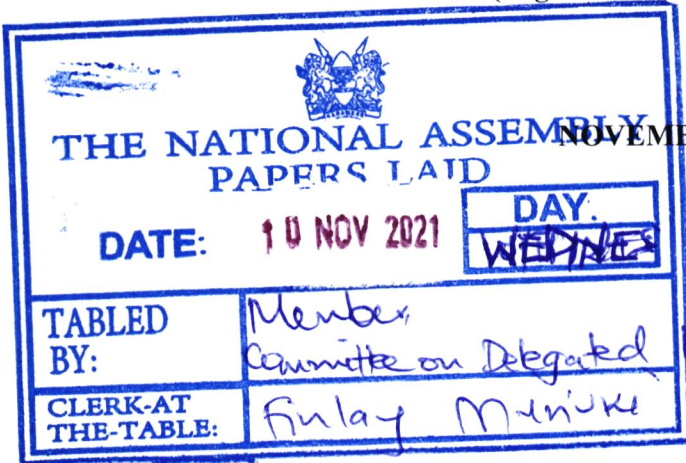 THE NATIONAL ASSEMBLY
NOVEMBE
PAPERS LAID
DATE: 10 NOV 2021
DAY.
WEDNES
TABLED BY:
Member,
Committee on Delegated
CLERK-AT THE-TABLE:
Finlay